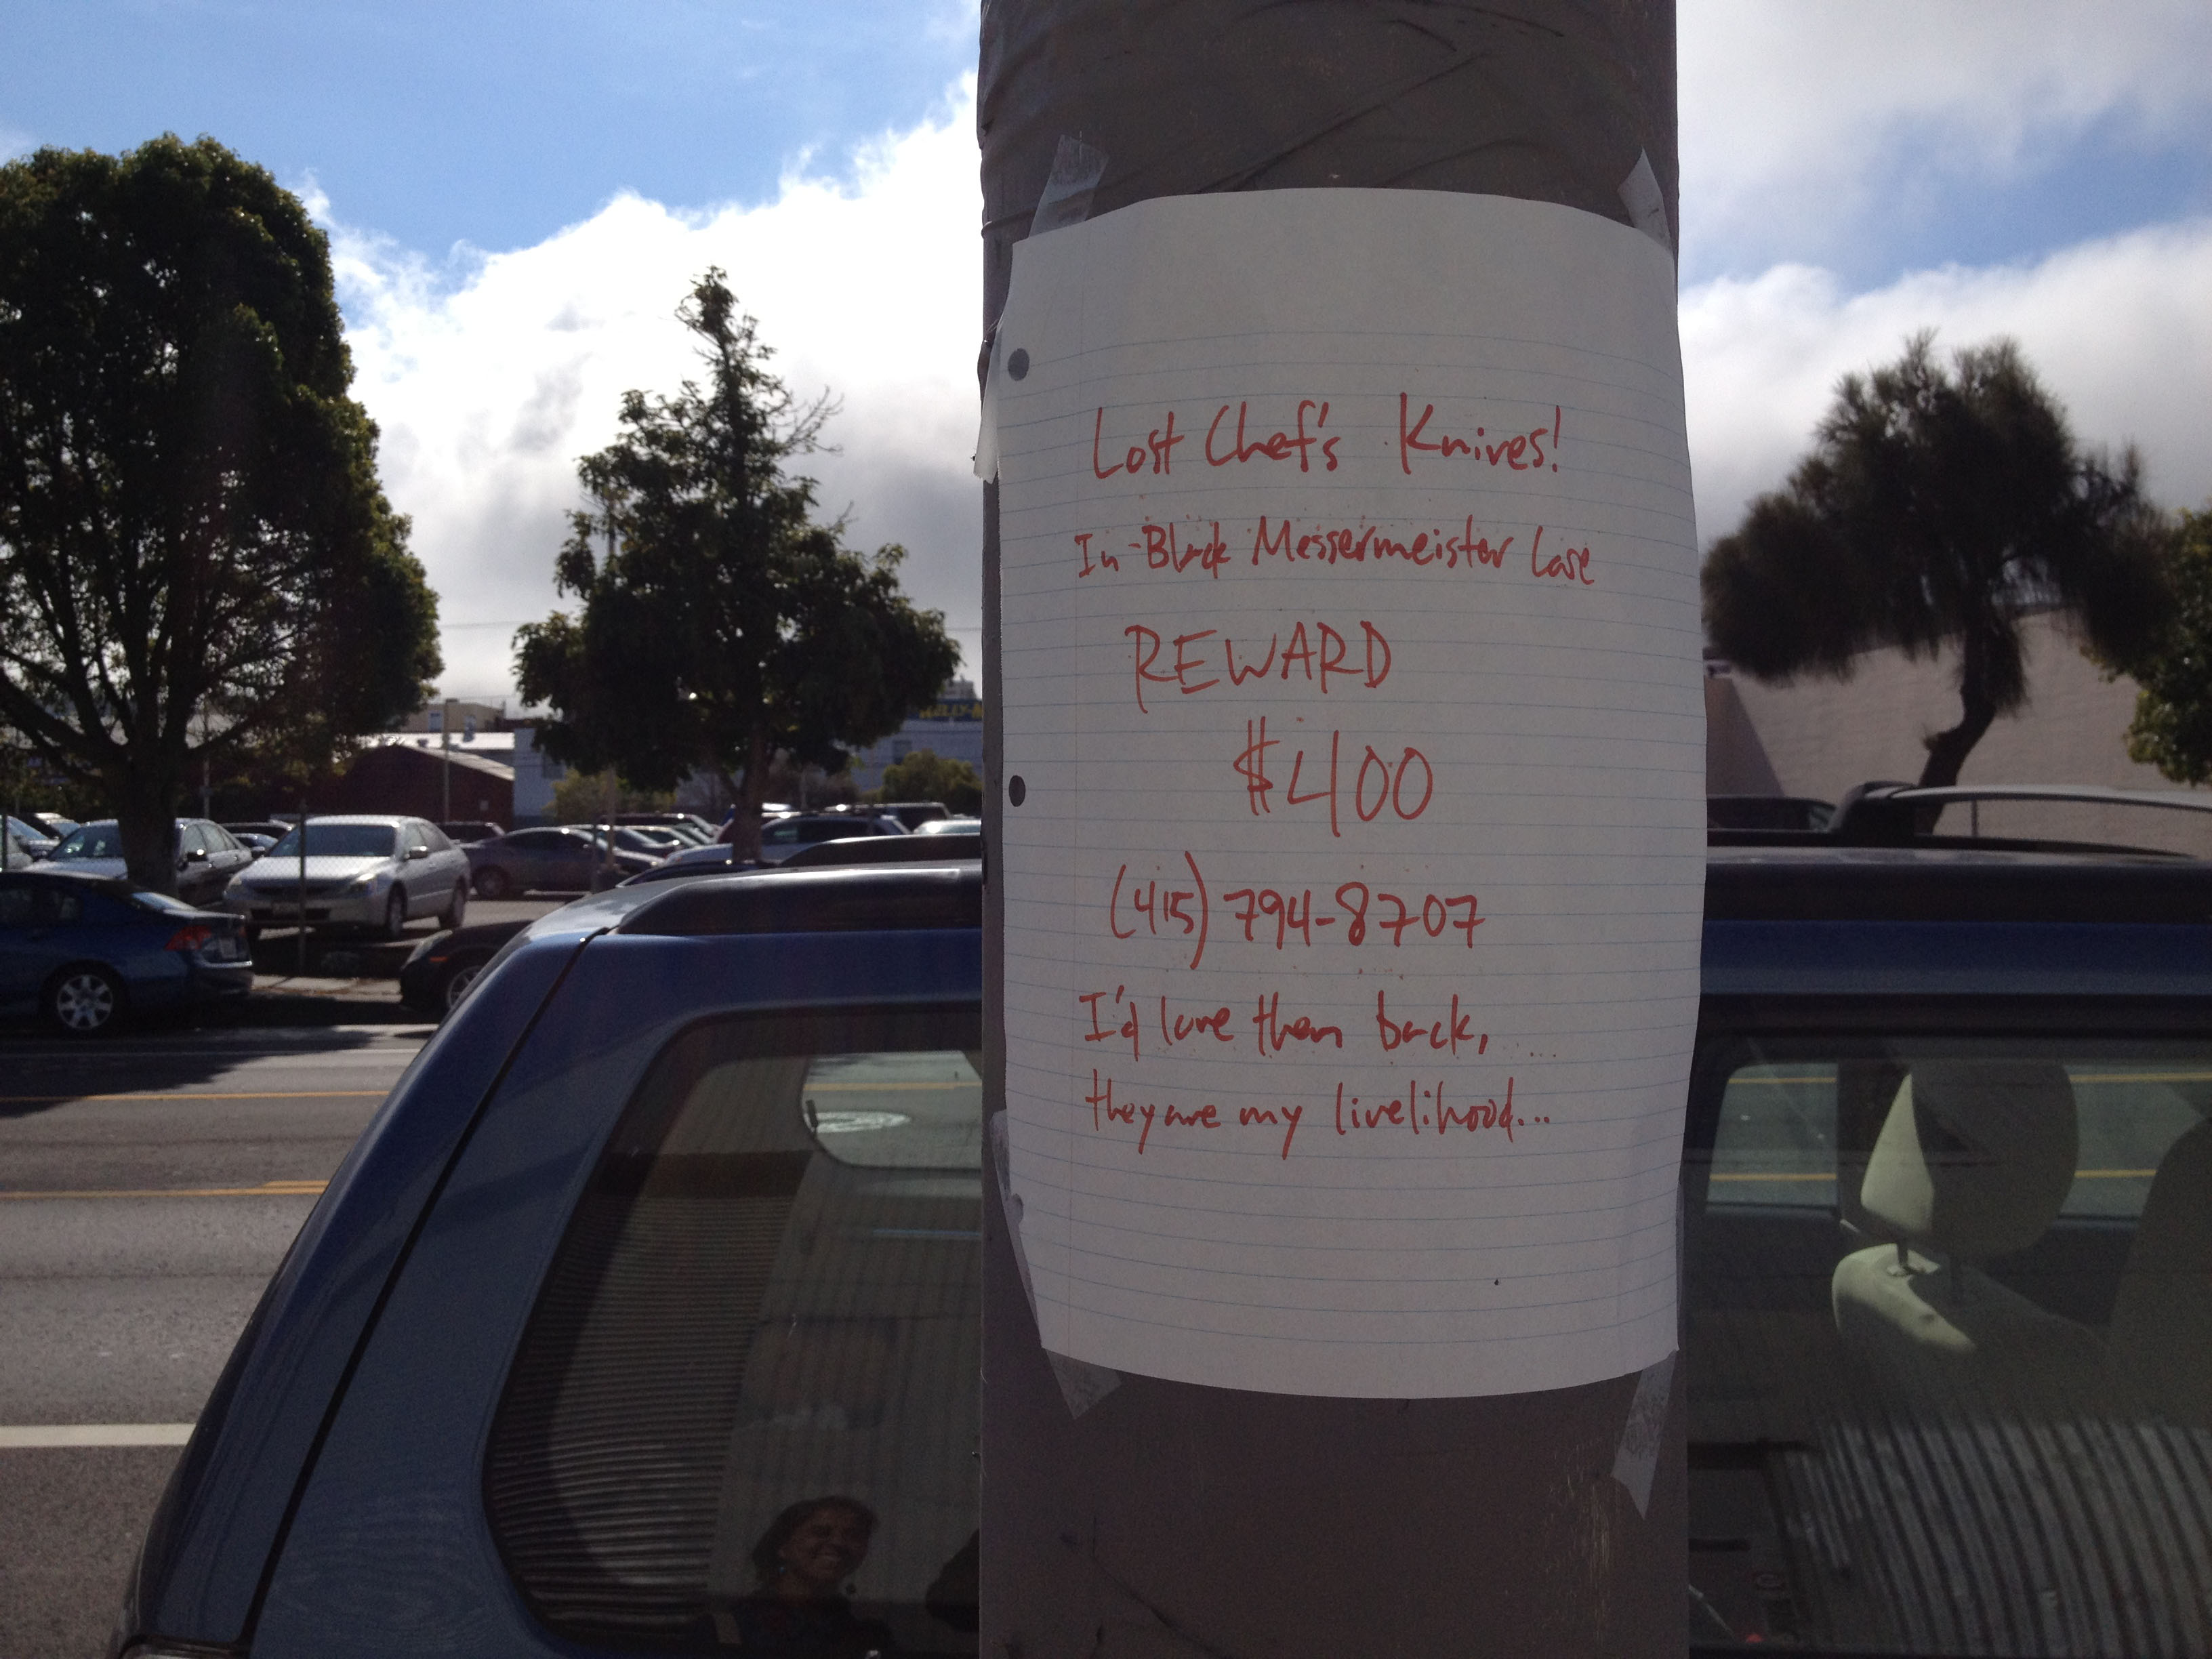 Lost Chef's Knives!
In Black Messermeister Case
REWARD
$400
(415) 794-8707
I'd love them back,
they are my livelihood...